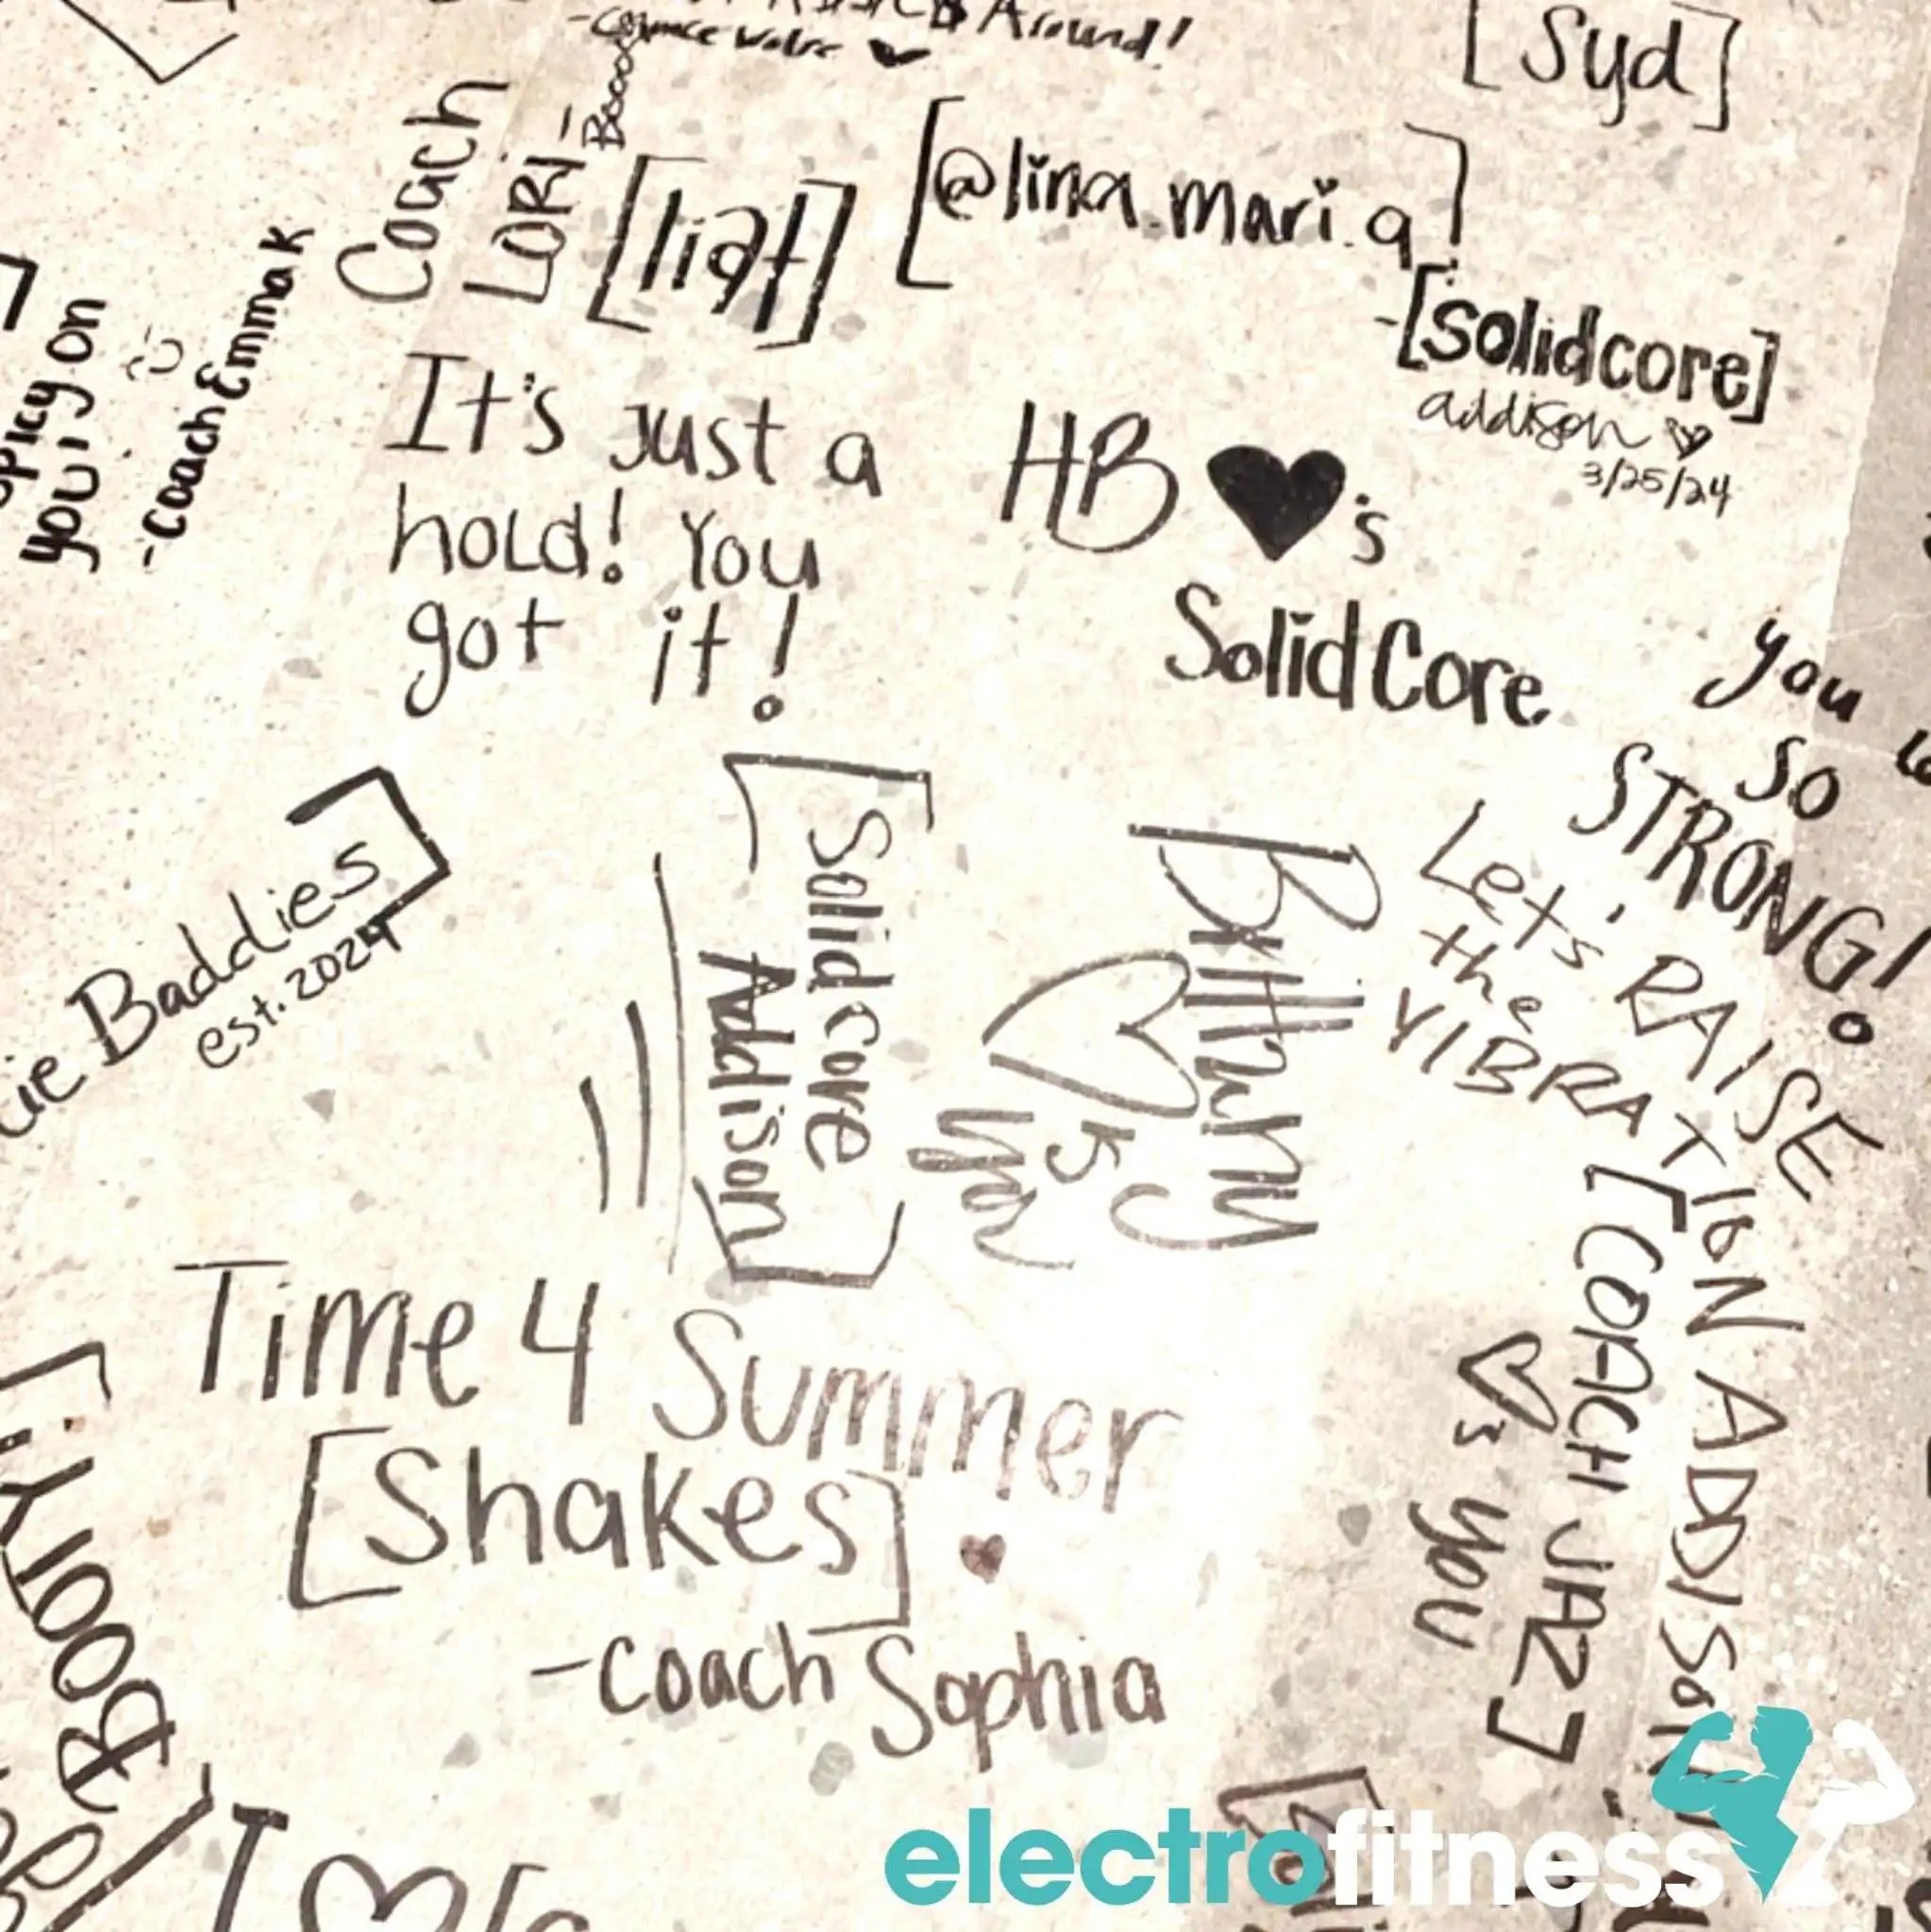 Around!
[Syd]
Coach
LORI-
[liat]
[@lina.mari.q]
-[solidcore]
addison
3/25/24
you! on
-Coach Emma K
It's just a
hold! You
got it!
HB ♥'s
SolidCore
you
so
STRONG!
Let's RAISE
the
VIBRATION ADDISON
Baddies]
est. 2024
[Solidcore
Addison]
Brittany
♡'s
you
Time 4 Summer
[Shakes] ♥
-Coach Sophia
[COACH JAZ]
♡'s you
BOOTY
I ♡
electrofitness